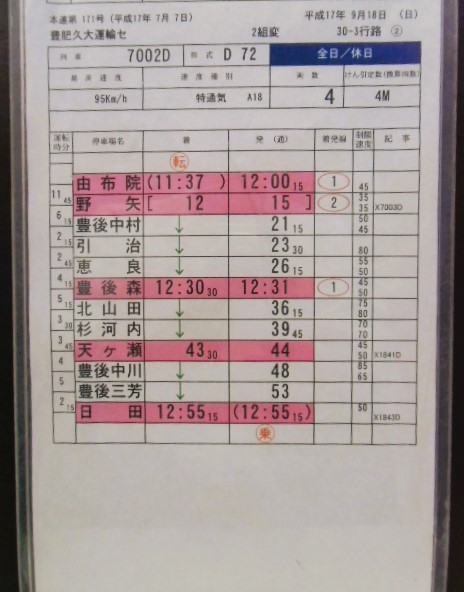 本運第 171号(平成17年 7月 7日) 平成17年 9月18日 (日)
豊肥久大運輸セ 2組変 30-3行路 ②
列車 7002D 形式 D 72 全日/休日
最高速度 速度種別 両数 けん引定数(換算両数)
95Km/h 特通気 A18 4 4M
運転時分 停車場名 着 発 (通) 着発線 制限速度 記事
転
由布院 (11:37 ) 12:00 15 1 45
11 45
野矢 [ 12 15 ] 2 35 35 X7003D
6 15
豊後中村 ↓ 21 15 50 45
2 15
引治 ↓ 23 30 80
2 45
恵良 ↓ 26 15 55 50
4 15
豊後森 12:30 30 12:31 1 50
5 15
北山田 ↓ 36 15 75 80
3 30
杉河内 ↓ 39 45 70 70
3 45
天ヶ瀬 43 30 44 45 50 X1841D
4
豊後中川 ↓ 48 85 65
5
豊後三芳 ↓ 53
2 15
日田 12:55 15 (12:55 15) 50 X1843D
乗